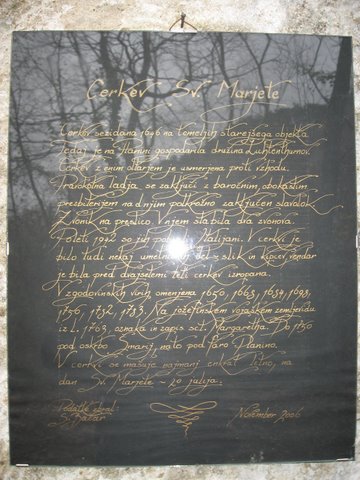 Cerkev Sv. Marjete
Cerkev sezidana 1696 na temeljih starejšega objekta.
Tedaj je na Planini gospodarila družina Lichtenthurnov.
Cerkev z enim oltarjem je usmerjena proti vzhodu.
Pravokotna ladja se zaključi z baročnim obokašim
prezbiterijem na d njim polkrožno zaključen slavolok.
Zvonik na preslico. V njem sta bila dva zvonova.
Poleti 1942 so jih Italijani. V cerkvi je
bilo tudi nekaj umetniških del - slik in kipcev, vendar
je bila pred dvajsetimi leti cerkev izropana.
V zgodovinskih virih omenjena 1650, 1663, 1684, 1693,
1736, 1752, 1753. Na jožefinskem vojaškem zemljevidu
iz l. 1763, oznaka in zapis sct. Margaretha. Do 1750
pod oskrbo Šmarij, nato pod faro Planina.
V cerkvi se mašuje najmanj enkrat letno, na
dan Sv. Marjete - 20 julija.
Podatke zbral:
S. Bažar
November 2006